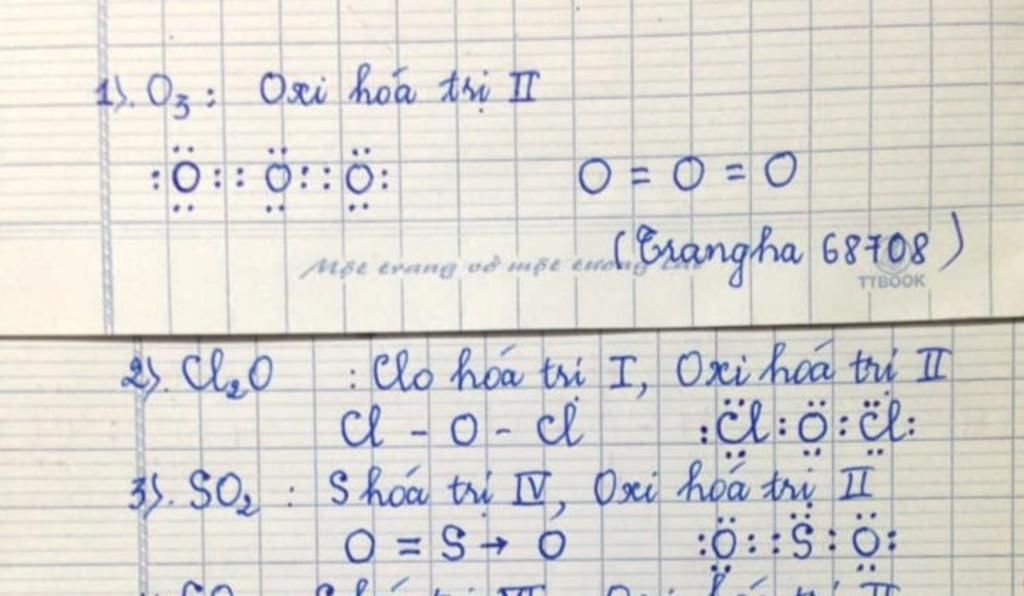 1). O₃ : Oxi hoá trị II
:O::O::O: O = O = O
(Trangha 68708)
Một trang vở một tương
TTBOOK
2). Cl₂O : Clo hoá trị I, Oxi hoá trị II
Cl - O - Cl :Cl:O:Cl:
3). SO₂ : S hoá trị IV, Oxi hoá trị II
O = S → O :O::S:O: